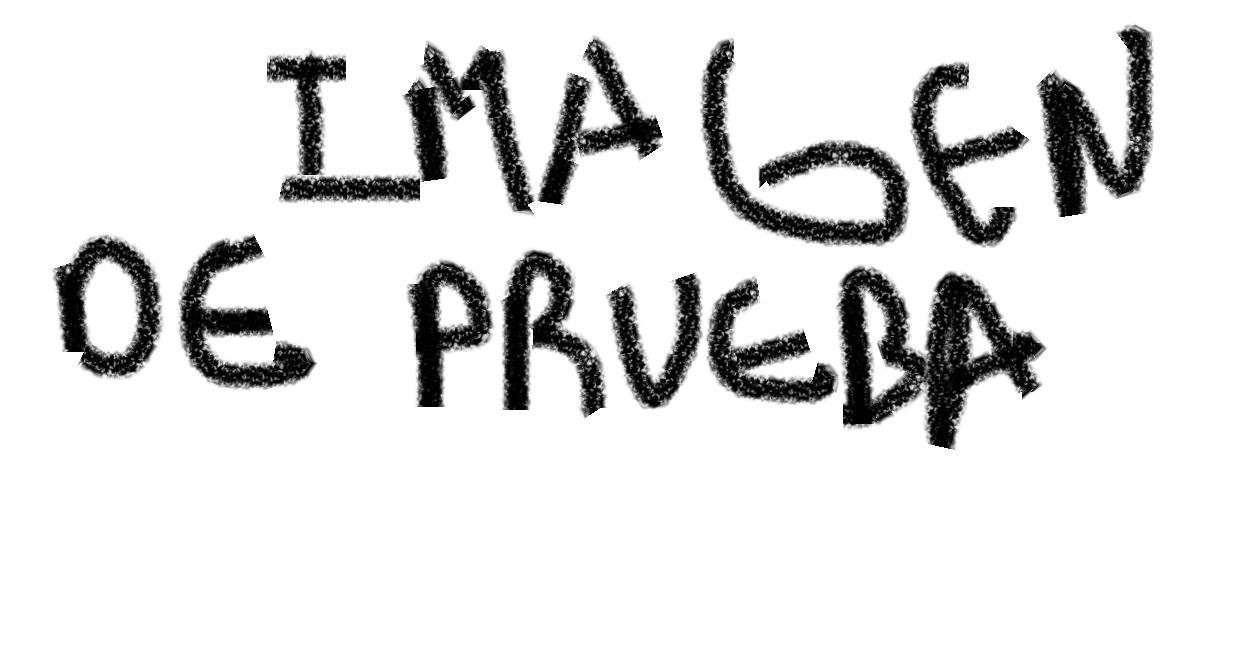 IMAGEN
DE PRUEBA